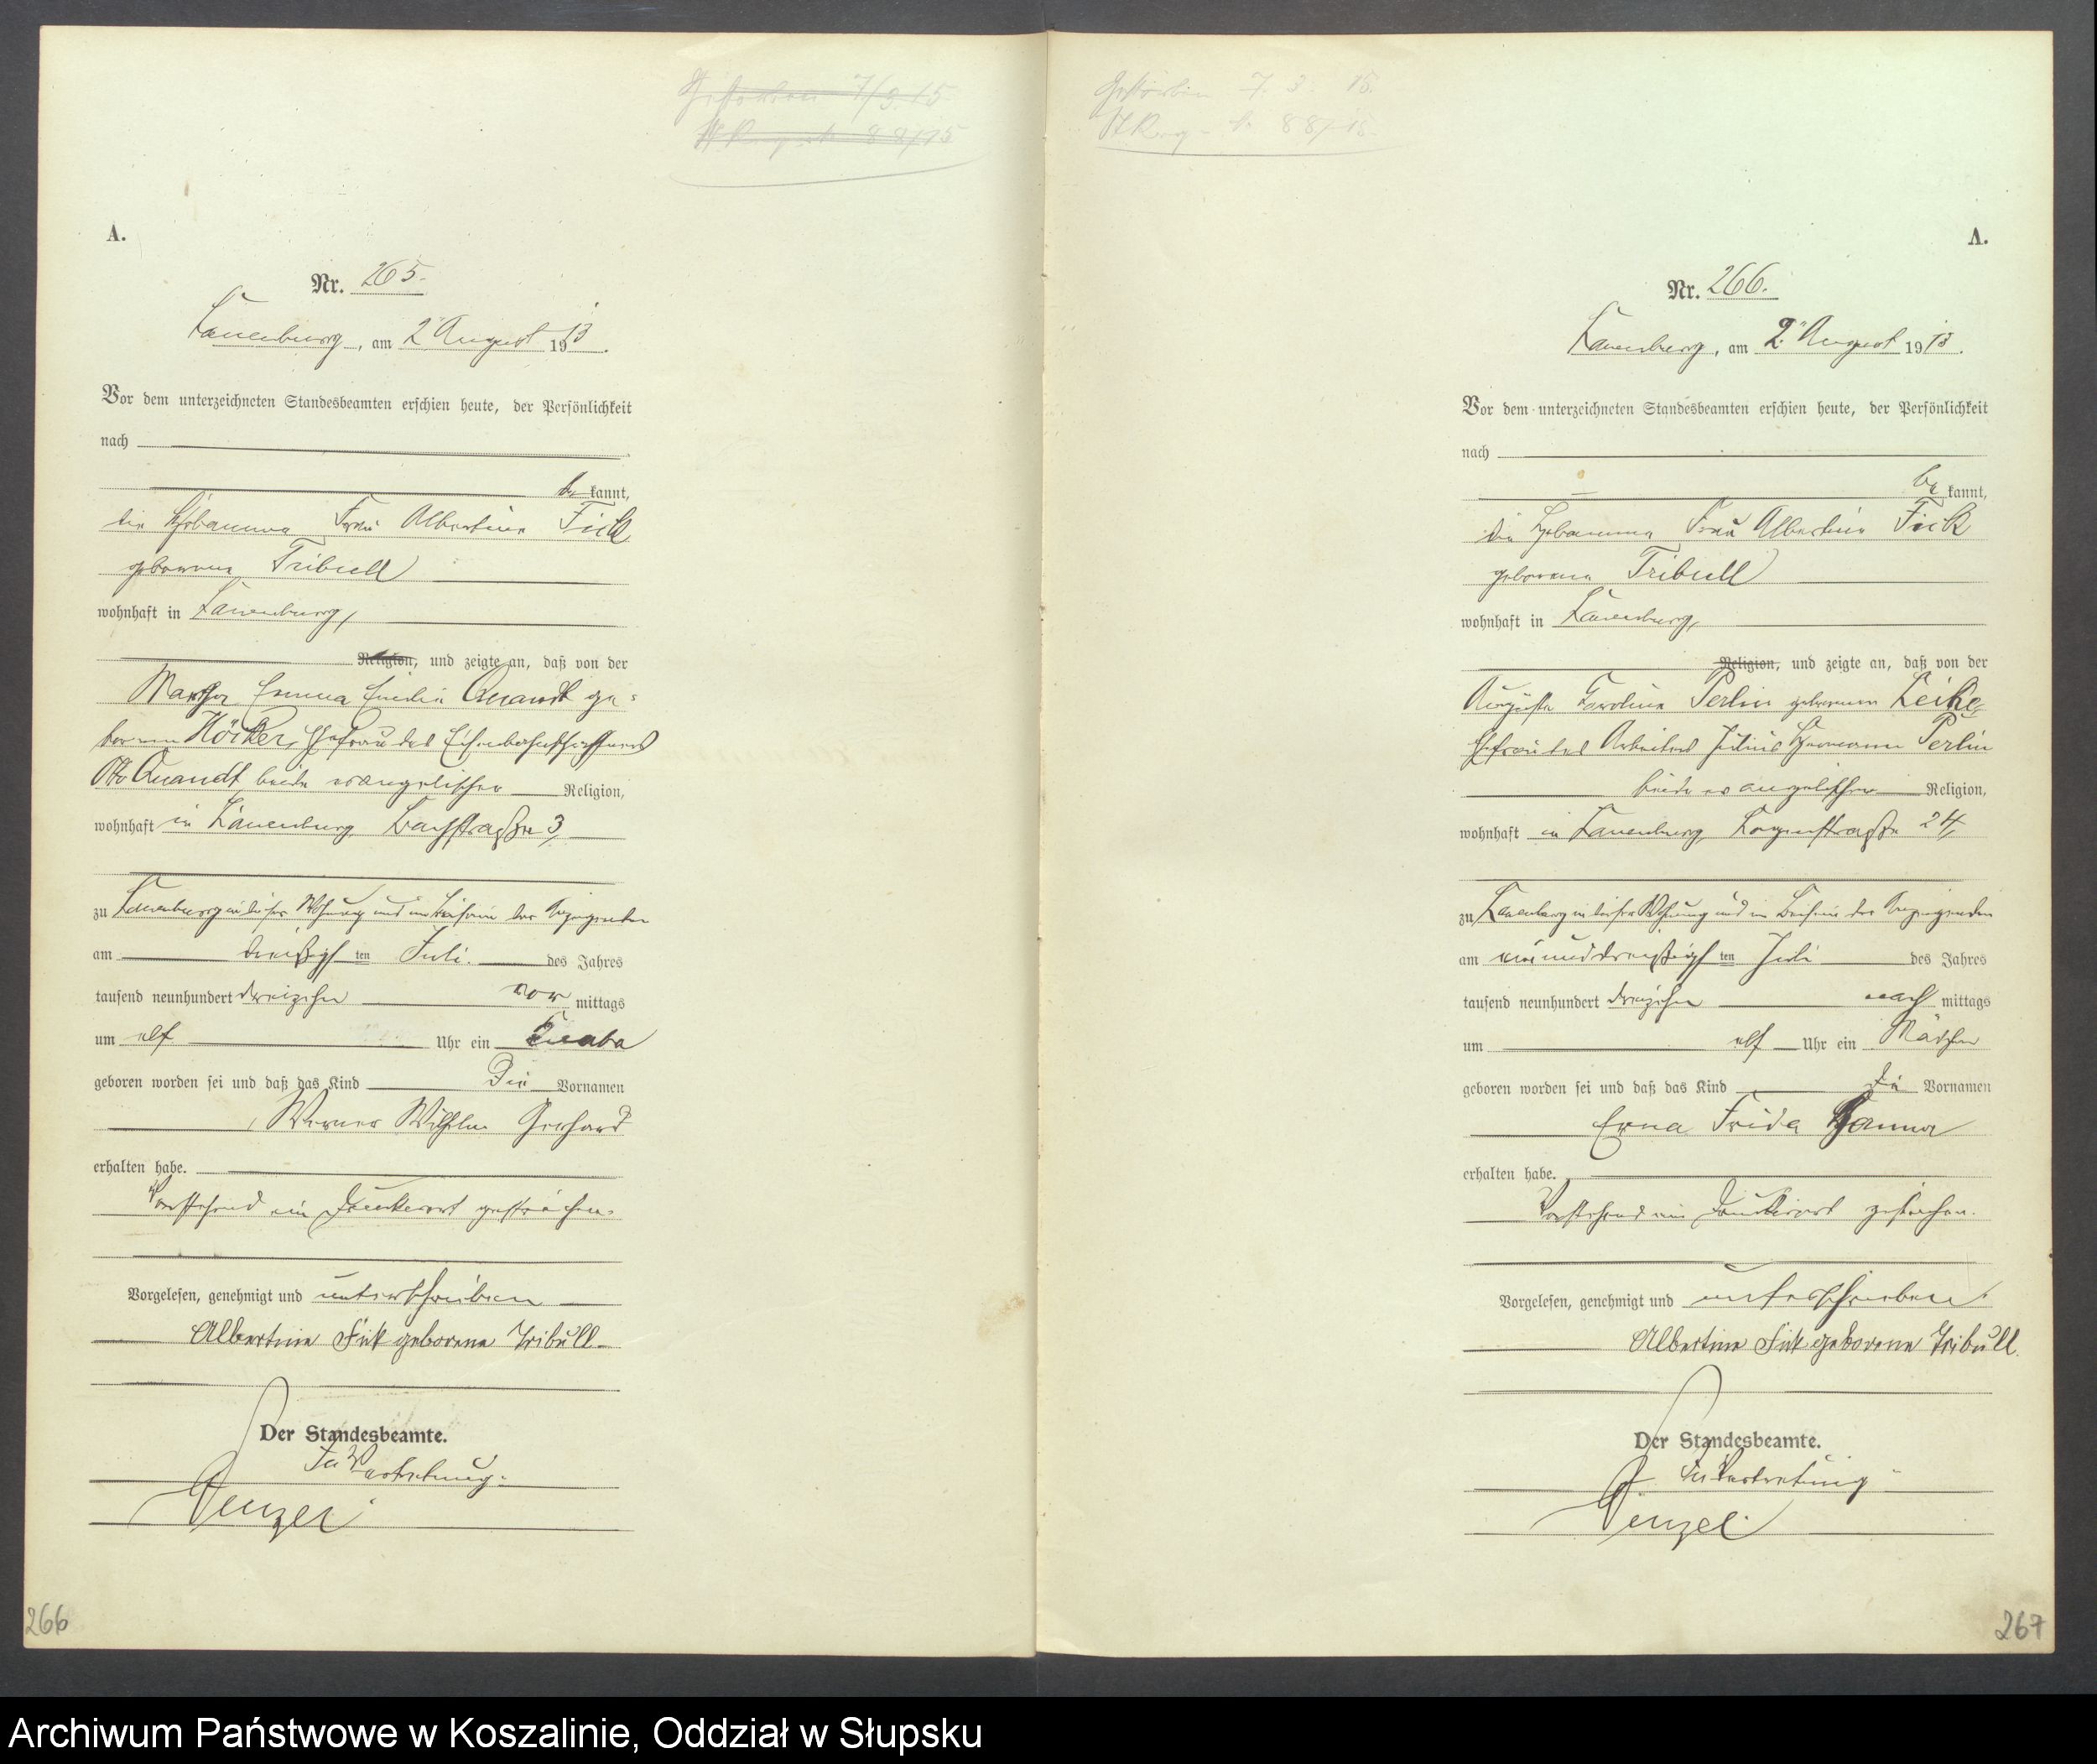 Gestorben 7/3 15
St. Reg. 88/15
A.
Nr. 265.
Lauenburg, am 2. August 1913.
Vor dem unterzeichneten Standesbeamten erschien heute, der Persönlichkeit
nach
be kannt,
die Hebamme Frau Albertine Fick
geborene Tribull
wohnhaft in Lauenburg,
Religion, und zeigte an, daß von der
Martha Emma Emilie Quandt ge-
borenen Höcker, Ehefrau des Eisenbahnschaffners
Otto Quandt, beide evangelischer Religion,
wohnhaft in Lauenburg, Bachstraße 3,
zu Lauenburg in dieser Wohnung und im Beisein der Anzeigenden
am dreißigsten Juli des Jahres
tausend neunhundert dreizehn vor mittags
um elf Uhr ein Knabe
geboren worden sei und daß das Kind die Vornamen
Werner Wilhelm Gerhard
erhalten habe.
Vorstehend ein Druckwort gestrichen.
Vorgelesen, genehmigt und unterschrieben
Albertine Fick geborene Tribull
Der Standesbeamte.
In Vertretung:
Wenzel
266
Gestorben 7. 3. 15.
St. Reg. 88/15
A.
Nr. 266.
Lauenburg, am 2. August 1913.
Vor dem unterzeichneten Standesbeamten erschien heute, der Persönlichkeit
nach
be kannt,
die Hebamme Frau Albertine Fick
geborene Tribull
wohnhaft in Lauenburg,
Religion, und zeigte an, daß von der
Auguste Karoline Perlin geborenen Leike,
Ehefrau des Arbeiters Julius Hermann Perlin
beide evangelischer Religion,
wohnhaft in Lauenburg, Logenstraße 24,
zu Lauenburg in dieser Wohnung und im Beisein der Anzeigenden
am einunddreißigsten Juli des Jahres
tausend neunhundert dreizehn nach mittags
um elf Uhr ein Mädchen
geboren worden sei und daß das Kind die Vornamen
Erna Frida Hanna
erhalten habe.
Vorstehend ein Druckwort gestrichen.
Vorgelesen, genehmigt und unterschrieben
Albertine Fick geborene Tribull.
Der Standesbeamte.
In Vertretung
Wenzel
267
Archiwum Państwowe w Koszalinie, Oddział w Słupsku